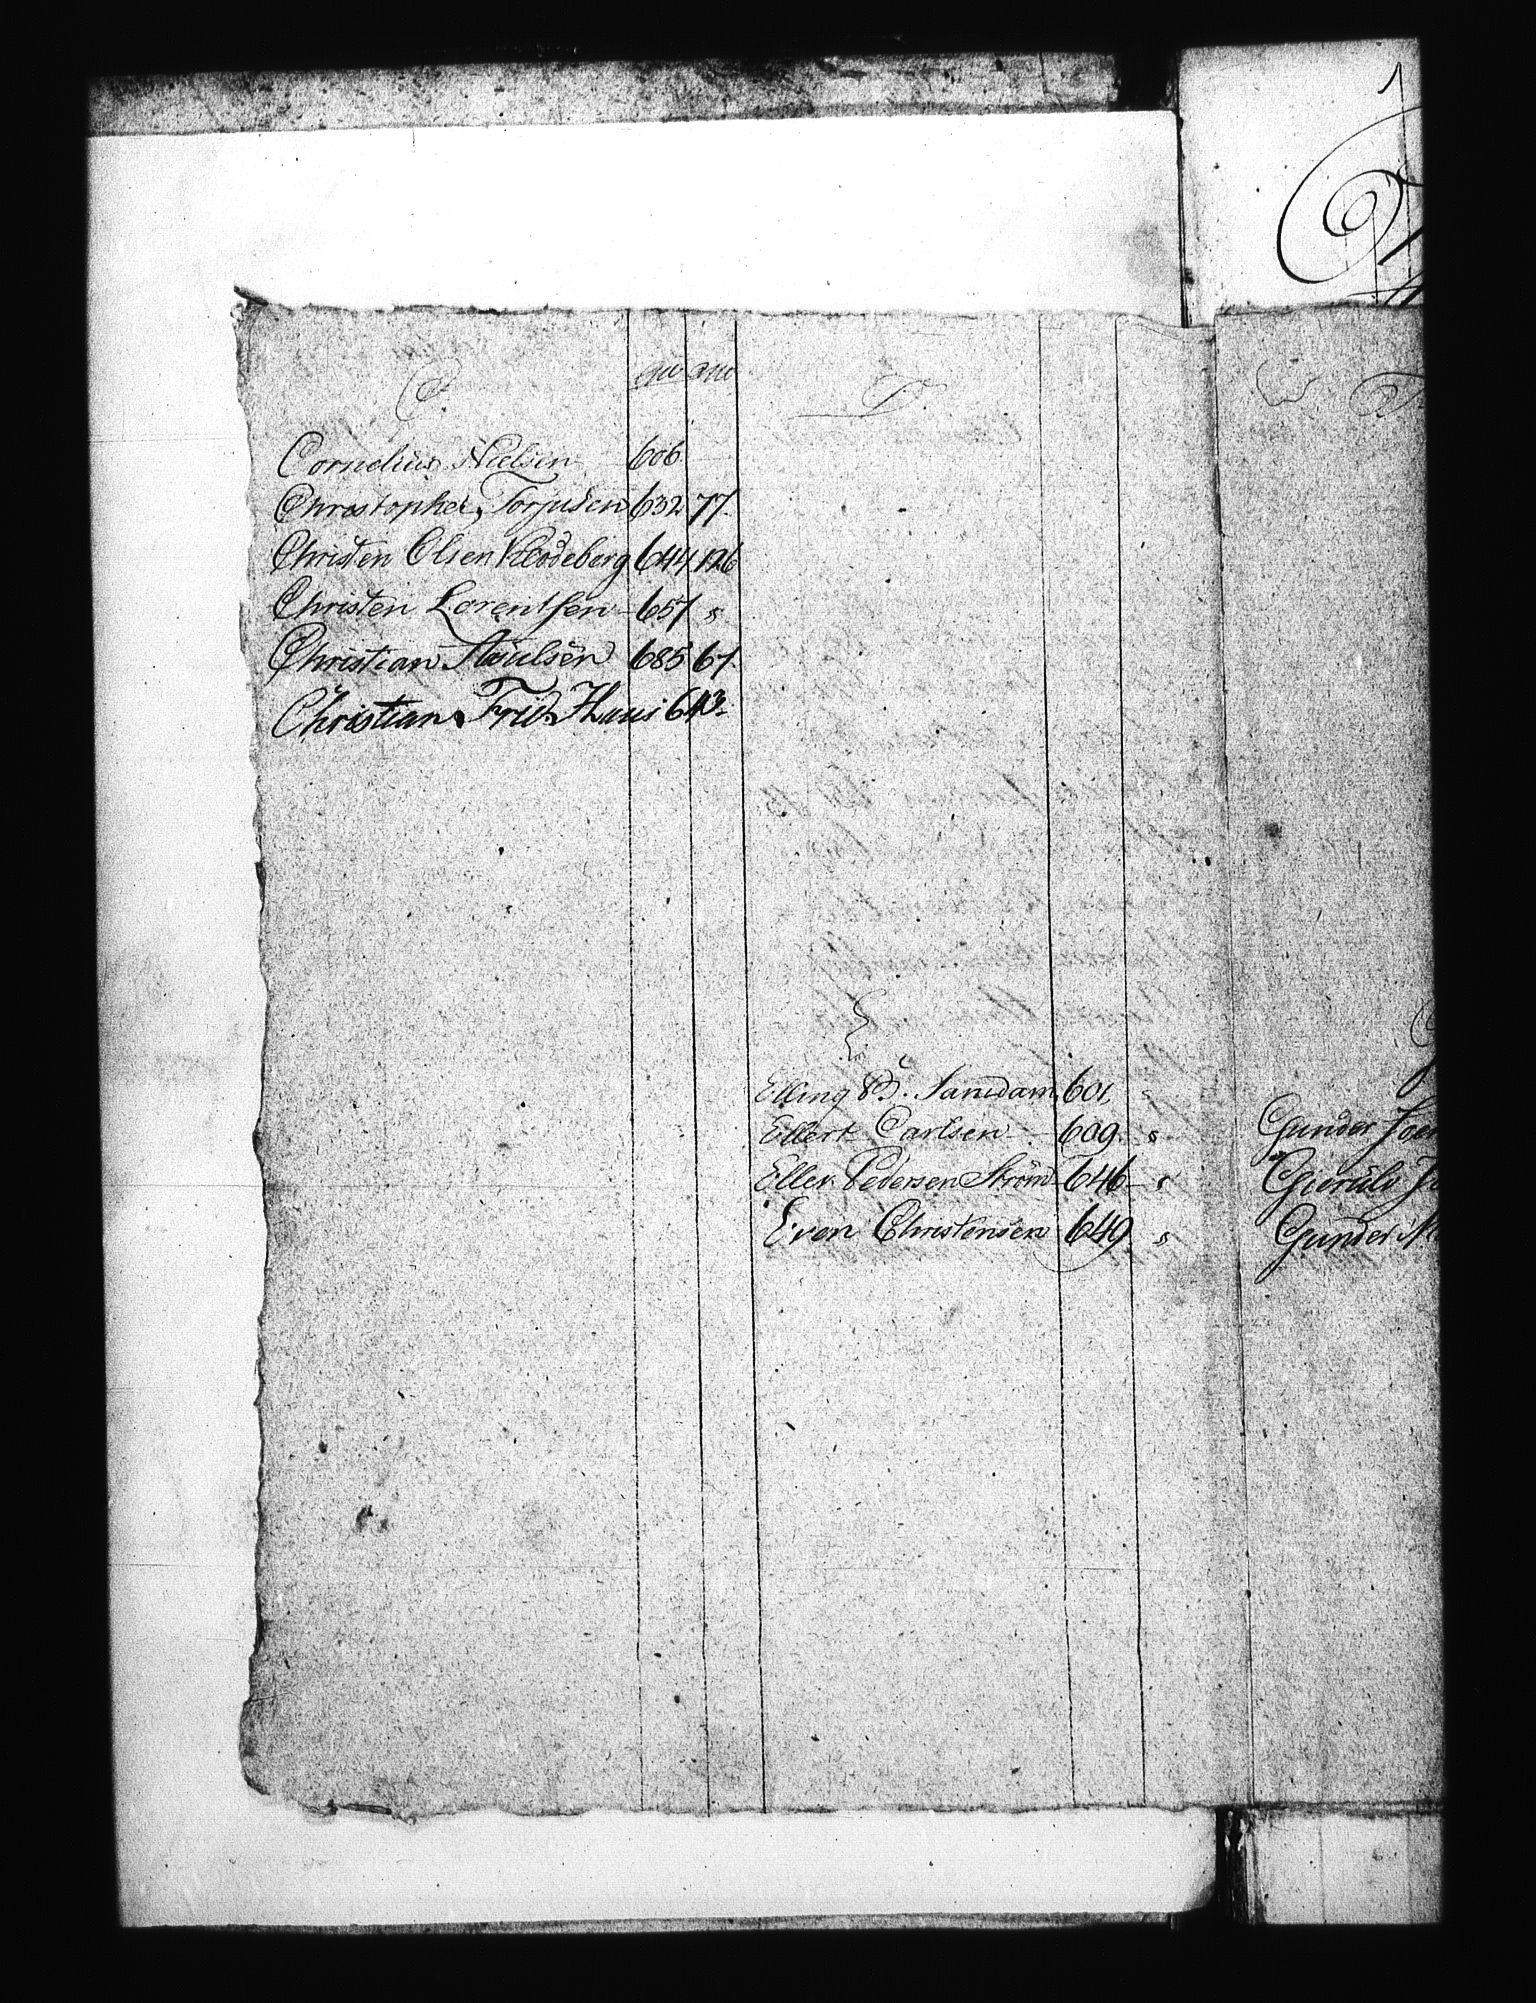 C
Cornelius Nielsen 606
Christopher Torjusen 632 77
Christen Olsen Klodeberg 644 126
Christen Lorentsen 657 s
Christian Paulsen 685 67
Christian Frid. Hans 643
D.
E
Elling B. Samdam 601 s
Ellert Carlsen 609 s
Ellev Pedersen Strömd 646 s
Even Christensen 649 s
Gunder
Gierulv
Gunder